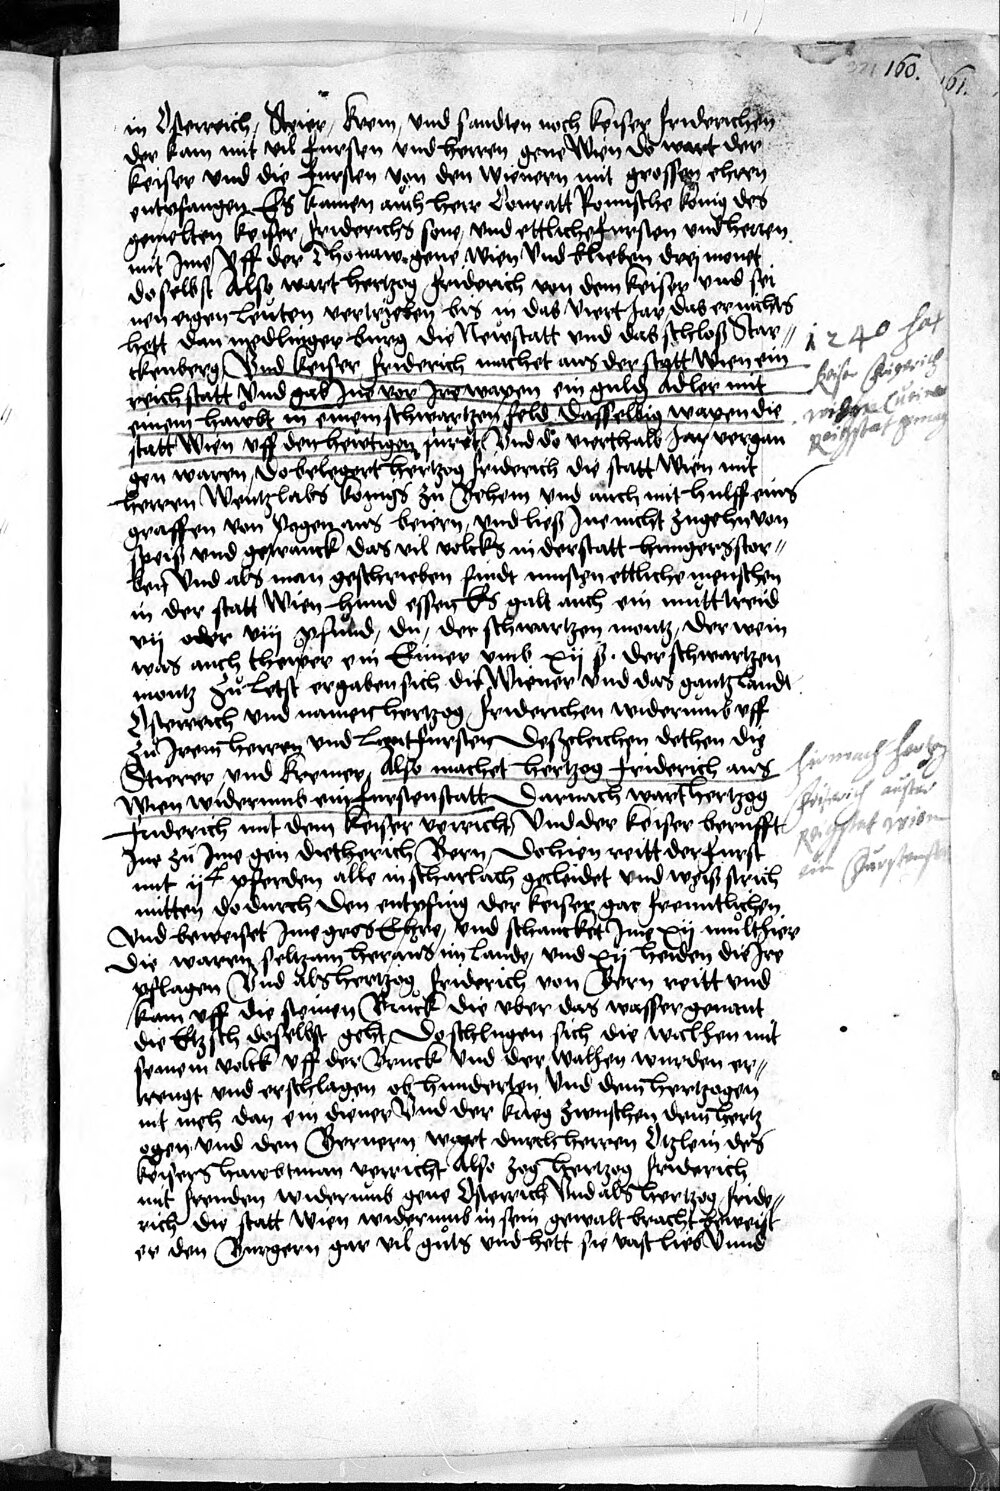 160. 161.
in Osterreich, Steier, Krein, und sandten noch keiser friderichen
der kam mit vil fursten und herren gene Wien do wart der
keiser und die fursten von den wienern mit grossen ehren
entpfangen Es kamen auch herr Conratt Romische konig des
gemelten keiser friderichs sone, und ettliche fursten und herren
mit Ime uff der Thonaw gene wien Und blieben drei monet
doselbst Also wart hertzog friderich von dem keiser und sei
nen eigen leuten vertrieben bis in das viert Jar das er nichts
hett dan medlinger burg die Newstatt und das schloß Star-"
ckenberg Und keiser friderich machet aus der statt Wien ein
reichstatt Und gab Ine vor Ire wapen ein guldin Adler mit
einem hawbt in einem schwartzen feld Dasselbig wapen die
statt Wien uff den hewtigen furet Und do vierthalb Jar vergan
gen waren, do belegert hertzog friderich die statt Wien mit
herren Wentzlabs konigs zu Behem und auch mit hulff eins
graffen von Pogen aus beiern, und ließ Ine nicht zugehn von
speiß und getranck das vil volcks in der statt hungers stor-"
ben Und als man geschrieben findt musten ettliche menschen
in der statt Wien hund essen Es galt auch ein mutt treid
vij oder viij pfund, dn, der schwartzen montz, der wein
was auch thewer ein Eimer umb xij ß. der schwartzen
montz Zu letst ergaben sich die Wiener und das gantz landt
Osterreich und namen hertzog friderichen widerumb uff
Zu Irem herren und Lantfursten Deszgleichen dethen die
Stierer und Kreiner, Also machet hertzog friderich aus
Wien widerumb ein furstenstatt Darnach wart hertzog
friderich mit dem keiser verricht Und der keiser berufft
Ine zu Ime gen dietherich Bern, Dohien reitt der furst
mit ijc pferden alle in scharlach gecleidet und weiß strich
mitten dodurch Den entpfing der keiser gar freuntlichen
Und beweiset Ime gros Ehre, und schancket Ime xij multhier
die waren seltzam heraus im lande, und xij heiden die Ire
pflagen Und als hertzog friderich von Bern reitt und
kam uff die steinen Bruck die uber das wasser genant
die Etzsch doselbst geht, Do schlugen sich die walhen mit
seinem volck uff der Bruck Und der walhen wurden er-"
trengt und erschlagen ob hunderten Und dem hertzogen
nit meh dan ein diener Und der krieg zwuschen dem hertz
ogen und den Bernern wart durch herren Etzlein des
keisers hawbtman verricht Also zog hertzog friderich
mit freuden widerumb gene Osterreich Und als hertzog fride-"
rich die statt Wien widerumb in sein gewalt bracht beweist
er den Burgern gar vil guts und hett sie vast lieb Unnd
1240 hat
keiser Friderich
Reichstat gemacht
hirnach hertzog
Friderich auß der
Reichstat Wien
ein Furstenstat